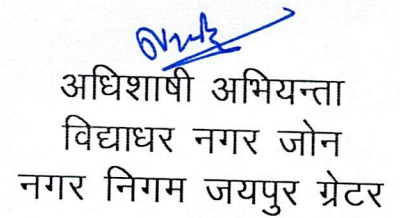 अधिशाषी अभियन्ता
विद्याधर नगर जोन
नगर निगम जयपुर ग्रेटर